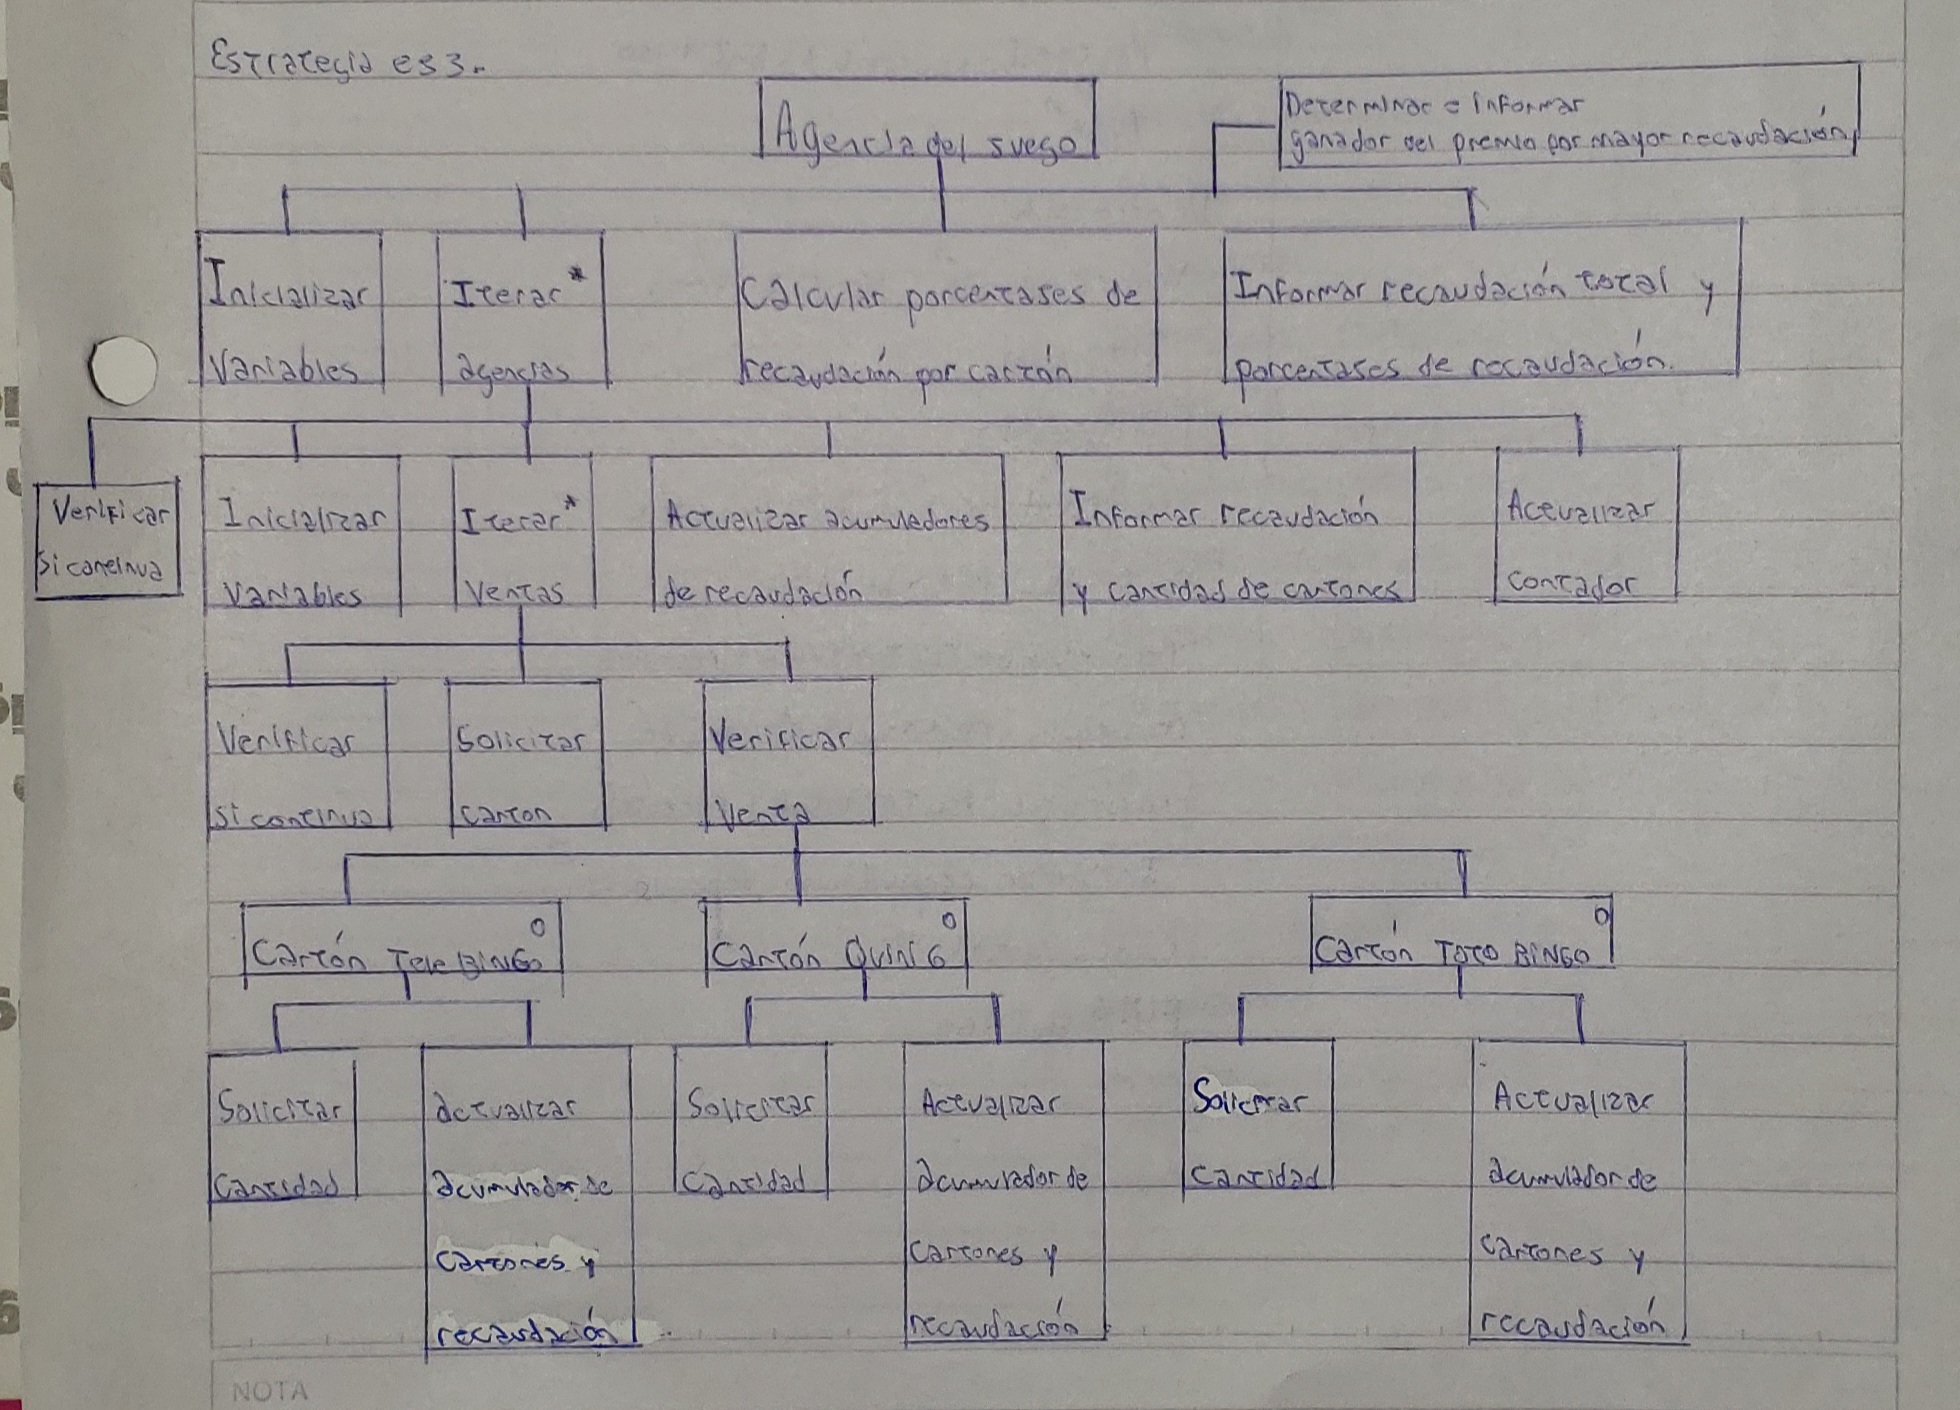 Estrategia ej 3.
Agencia del juego
Determinar e informar
ganador del premio por mayor recaudación
Inicializar
Variables
Iterar *
agencias
Calcular porcentajes de
recaudación por cartón
Informar recaudación total y
porcentajes de recaudación.
Verificar
si continua
Inicializar
Variables
Iterar *
Ventas
Actualizar acumuladores
de recaudación
Informar recaudación
y cantidad de cartones
Actualizar
contador
Verificar
si continua
Solicitar
carton
Verificar
Venta
Cartón Tele BINGO o
Cartón QUING o
Cartón TOTO BINGO o
Solicitar
Cantidad
actualizar
acumulador de
cartones y
recaudación
Solicitar
Cantidad
Actualizar
acumulador de
cartones y
recaudación
Solicitar
Cantidad
Actualizar
acumulador de
cartones y
recaudación
NOTA